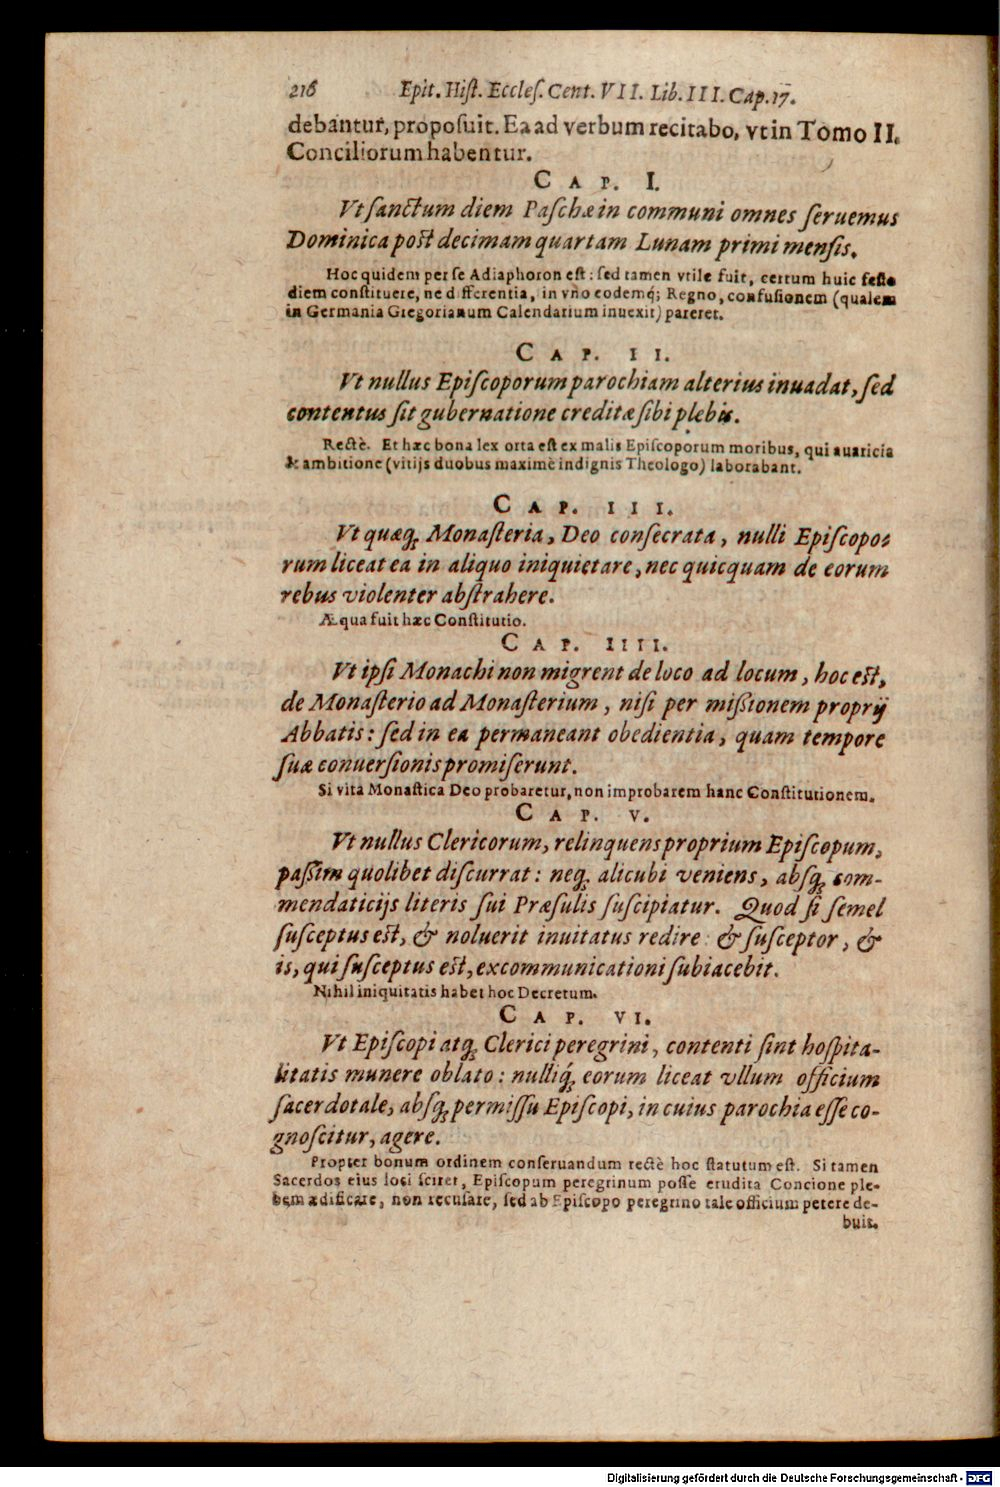 216 Epit. Hiſt. Eccleſ. Cent. VII. Lib. III. Cap. 17.
debantur, propoſuit. Ea ad verbum recitabo, vt in Tomo II.
Conciliorum habentur.
CAP. I.
Vt ſanctum diem Paſchæ in communi omnes ſeruemus
Dominica poſt decimam quartam Lunam primi menſis.
Hoc quidem per ſe Adiaphoron eſt: ſed tamen vtile fuit, certum huic feſto
diem conſtituere, ne differentia, in vno eodemq́; Regno, confuſionem (qualem
in Germania Gregorianum Calendarium inuexit) pareret.
CAP. II.
Vt nullus Epiſcoporum parochiam alterius inuadat, ſed
contentus ſit gubernatione creditæ ſibi plebis.
Rectè. Et hæc bona lex orta eſt ex malis Epiſcoporum moribus, qui auaricia
& ambitione (vitijs duobus maximè indignis Theologo) laborabant.
CAP. III.
Vt quæq; Monaſteria, Deo conſecrata, nulli Epiſcopo-
rum liceat ea in aliquo iniquietare, nec quicquam de eorum
rebus violenter abſtrahere.
Æqua fuit hæc Conſtitutio.
CAP. IIII.
Vt ipſi Monachi non migrent de loco ad locum, hoc eſt,
de Monaſterio ad Monaſterium, niſi per miſsionem proprij
Abbatis: ſed in ea permaneant obedientia, quam tempore
ſuæ conuerſionis promiſerunt.
Si vita Monaſtica Deo probaretur, non improbarem hanc Conſtitutionem.
CAP. V.
Vt nullus Clericorum, relinquens proprium Epiſcopum,
paſſim quolibet diſcurrat: neq; alicubi veniens, abſq; com-
mendaticijs literis ſui Præſulis ſuſcipiatur. Quod ſi ſemel
ſuſceptus eſt, & noluerit inuitatus redire: & ſuſceptor, &
is, qui ſuſceptus eſt, excommunicationi ſubiacebit.
Nihil iniquitatis habet hoc Decretum.
CAP. VI.
Vt Epiſcopi atq; Clerici peregrini, contenti ſint hoſpita-
litatis munere oblato: nulliq́; eorum liceat vllum officium
ſacerdotale, abſq; permiſſu Epiſcopi, in cuius parochia eſſe co-
gnoſcitur, agere.
Propter bonum ordinem conſeruandum rectè hoc ſtatutum eſt. Si tamen
Sacerdos eius loci ſciret, Epiſcopum peregrinum poſſe erudita Concione ple-
bem ædificare, non recuſare, ſed ab Epiſcopo peregrino tale officium petere de-
buit.
Digitalisierung gefördert durch die Deutsche Forschungsgemeinschaft - DFG